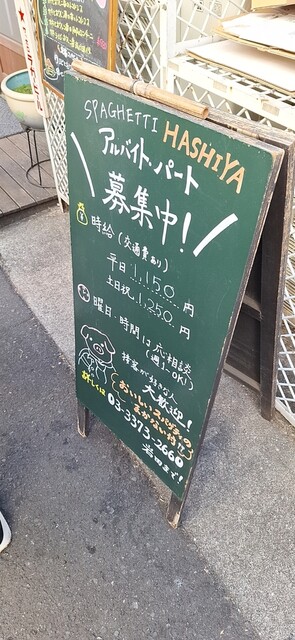 SPAGHETTI HASHIYA
アルバイト・パート
募集中!
時給(交通費あり)
平日:1,150円
土日祝:1,250円
曜日・時間は応相談
(週1〜OK!)
接客が好きな人
大歓迎!
おいしいスパゲティの
まかない付!!
詳しくは 03-3373-2660
岩田まで!